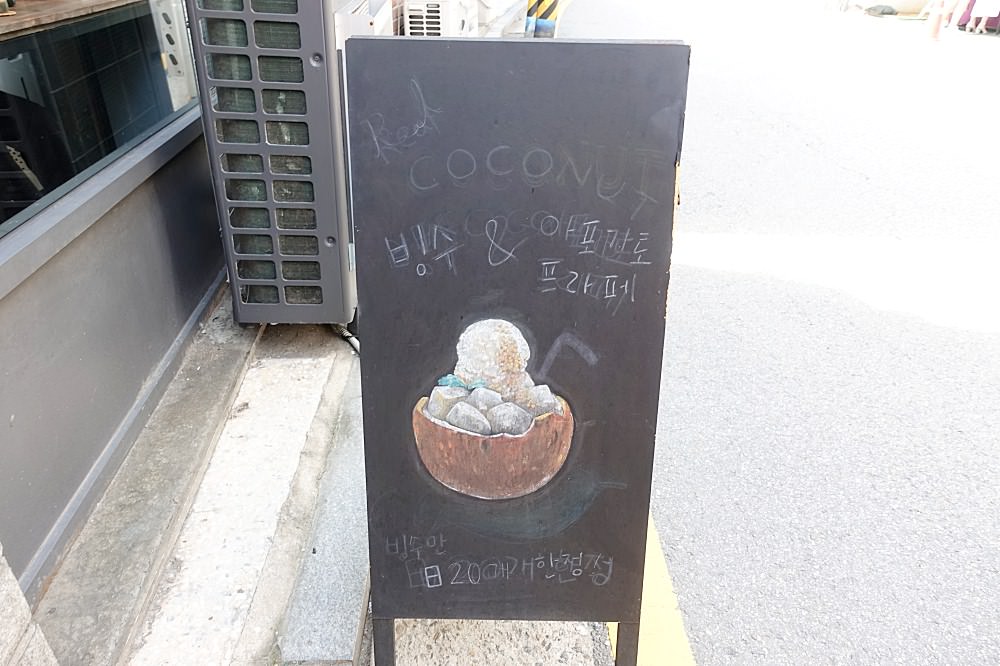 Real
COCONUT
빙수 & 아포가토
프라페
빙수만
日 20개한정